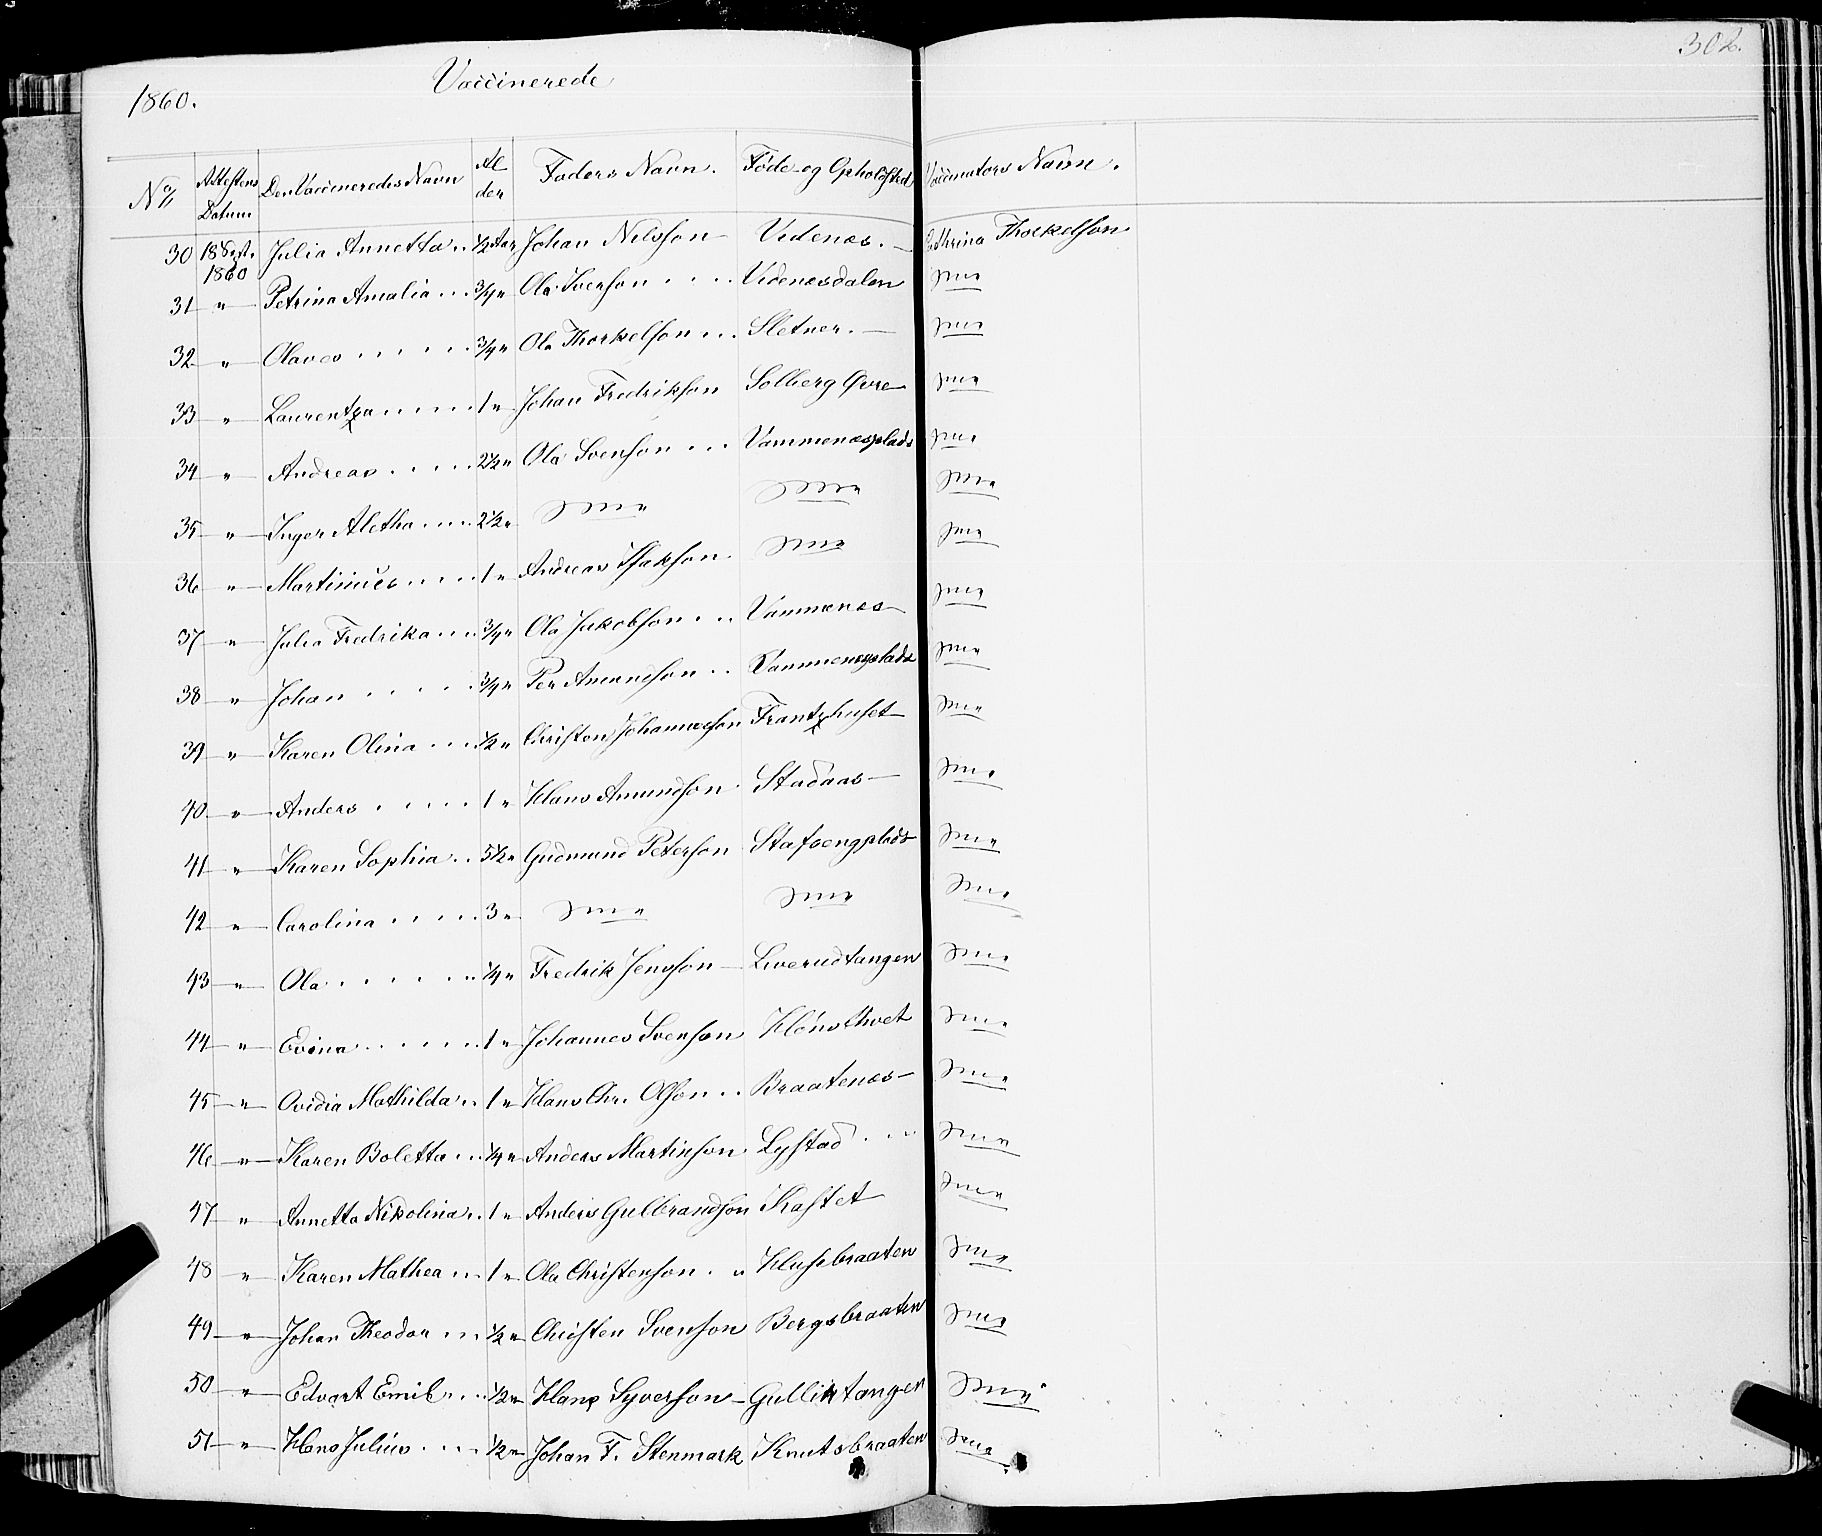 302.
1860. Vaccinerede
No Attestens Datum Den Vaccineredes Navn Alder Faders Navn. Føde og Opholdsted Vaccinators Navn.
30 18 Sept. 1860 Julia Annetta .. 1/2 Aar Johan Nilsson — Vedenæs. — Cathrina Thorkelson
31 " Petrina Amalia ... 3/4 " Ola Svenson .... Vedenæsdalen Do
32 " Olaves ...... 3/4 " Ola Thorkelson ... Sletner. — Do
33 " Laurentza ..... 1 " Johan Fredrikson Solberg Øvre Do
34 " Andreas ..... 2 1/2 " Ola Svenson ... Vammenæsplads Do
35 " Inger Aletha .... 2 1/2 " Do Do Do
36 " Martinius .... 1 " Andreas Isakson Do Do
37 " Julia Fredrika ... 3/4 " Ola Jakobson ... Vammenæs Do
38 " Johan ..... 3/4 " Per Amundson .. Vammenæsplads Do
39 " Karen Olina ... 1/2 " Christen Johannesson Frantzhuset Do
40 " Anders ..... 1 " Hans Amundson. Stadaas — Do
41 " Karen Sophia .. 5 1/2 " Gudmund Peterson Stafsengplads Do
42 " Carolina ..... 3 " Do Do Do
43 " Ola ...... 1/4 " Fredrik Jensson — Liverudtangen Do
44 " Evina ...... 1 " Johannes Svenson Do
45 " Ovidia Mathilda .. 1 " Hans Chr. Olson .. Braatenæs — Do
46 " Karen Boletta ... 1/4 " Anders Martinson. Lystad ... Do
47 " Annetta Nikolina .. 1 " Anders Gulbrandson Kastet Do
48 " Karen Mathea ... 1 " Ola Christenson .. Husebraaten Do
49 " Johan Theodor ... 1/2 " Christen Svenson Bergsbraaten Do
50 " Edvart Emil ... 1/2 " Hans Syverson — Gulliktangen Do
51 " Hans Julius .... 1/2 " Johan F. Stenmark Knutsbraaten Do